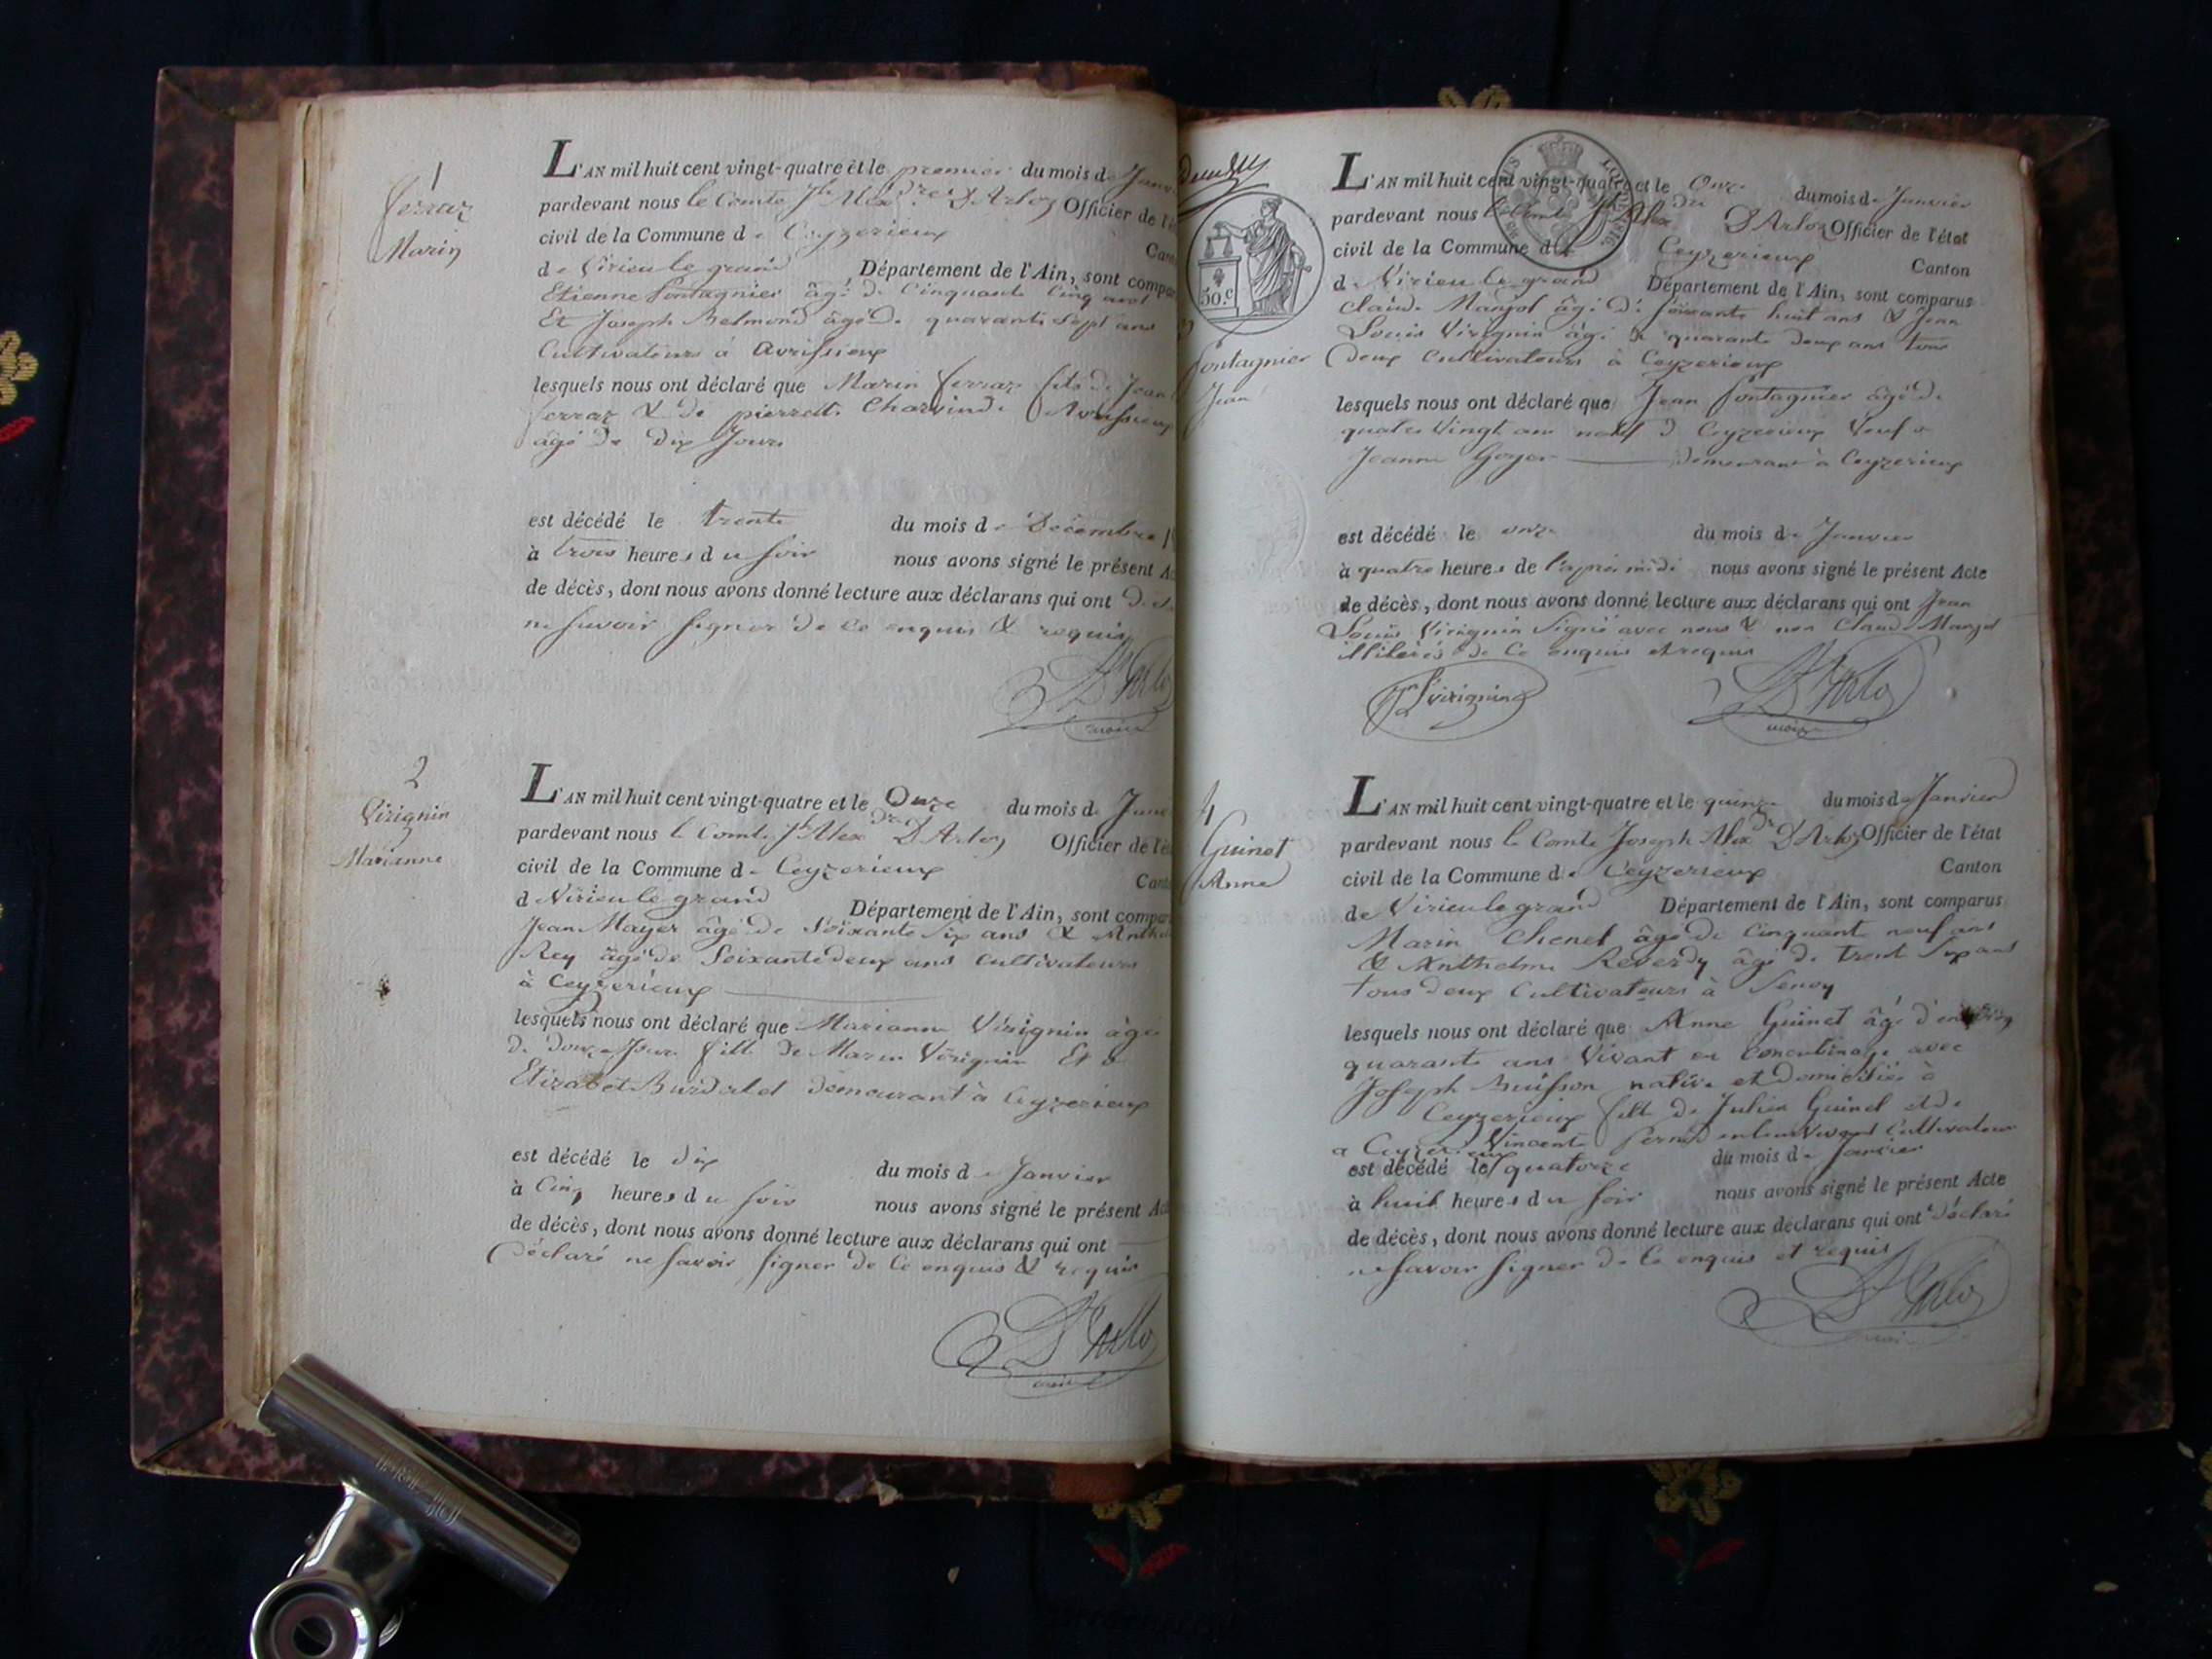 1
Ferraz
Marin
L'AN mil huit cent vingt-quatre et le premier du mois de Janv
pardevant nous le Comte Jh Alexdre D'Arloz Officier de l'é
civil de la Commune de Ceyzerieux
Can
de Virieu le grand Département de l'Ain, sont compar
Etienne Fontagnier âgé de Cinquante Cinq ans
Et Joseph Belmond âgé de quarante sept ans
Cultivateurs à Avrissieux
lesquels nous ont déclaré que Marin Ferraz fils de Jean
Ferraz & de pierrette Charvin de Avrissieux
âgé de dix Jours
est décédé le trente du mois de Décembre
à trois heures du soir nous avons signé le présent Ac
de décès, dont nous avons donné lecture aux déclarans qui ont
ne savoir signer de ce enquis & requis
D'Arloz
maire
2
Virignin
Marianne
L'AN mil huit cent vingt-quatre et le Onze du mois de Janv
pardevant nous le Comte Jh Alexdre D'Arloz Officier de l'ét
civil de la Commune de Ceyzerieux
Cant
de Virieu le grand Département de l'Ain, sont compar
Jean Mayer âgé de Soixante Six ans & Anthel
Rey âgé de Soixante deux ans Cultivateurs
à Ceyzerieux
lesquels nous ont déclaré que Marianne Virignin âgé
de douze Jours fille de Marin Virignin Et de
Elizabet Burdalet demeurant à Ceyzerieux
est décédé le dix du mois de Janvier
à Cinq heures du soir nous avons signé le présent Act
de décès, dont nous avons donné lecture aux déclarans qui ont
déclaré ne savoir signer de ce enquis & requis
D'Arloz
maire
50.c
Fontagnier
Jean
L'AN mil huit cent vingt-quatre et le Onze du mois de Janvier
pardevant nous le Comte Jh Alexdre D'Arloz Officier de l'état
civil de la Commune de Ceyzerieux
Canton
de Virieu le grand Département de l'Ain, sont comparus
Claude Manjot âgé de soixante huit ans & Jean
Louis Virignin âgé de quarante deux ans tous
deux Cultivateurs à Ceyzerieux
lesquels nous ont déclaré que Jean Fontagnier âgé de
quatre Vingt ans natif de Ceyzerieux Veuf de
Jeanne Goyer demeurant à Ceyzerieux
est décédé le onze du mois de Janvier
à quatre heures de l'après midi nous avons signé le présent Acte
de décès, dont nous avons donné lecture aux déclarans qui ont Jean
Louis Virignin Signé avec nous & non Claude Manjot
illiteré de ce enquis et requis
Virignin
D'Arloz
maire
4
Guinet
Anne
L'AN mil huit cent vingt-quatre et le quinze du mois de Janvier
pardevant nous le Comte Joseph Alexdre D'Arloz Officier de l'état
civil de la Commune de Ceyzerieux Canton
de Virieu le grand Département de l'Ain, sont comparus
Marin Chenet âgé de Cinquante neuf ans
& Anthelme Reverdy âgé de trente Six ans
tous deux Cultivateurs à Senoy
lesquels nous ont déclaré que Anne Guinet âgé d'environ
quarante ans Vivant en Concubinage avec
Joseph Buisson native et domiciliée à
Ceyzerieux fille de Julien Guinet et de
Vincente en leur Vivant Cultivateur
a Ceyzerieux
est décédé le quatorze du mois de Janvier
à huit heures du soir nous avons signé le présent Acte
de décès, dont nous avons donné lecture aux déclarans qui ont déclaré
ne savoir signer de ce enquis et requis
D'Arloz